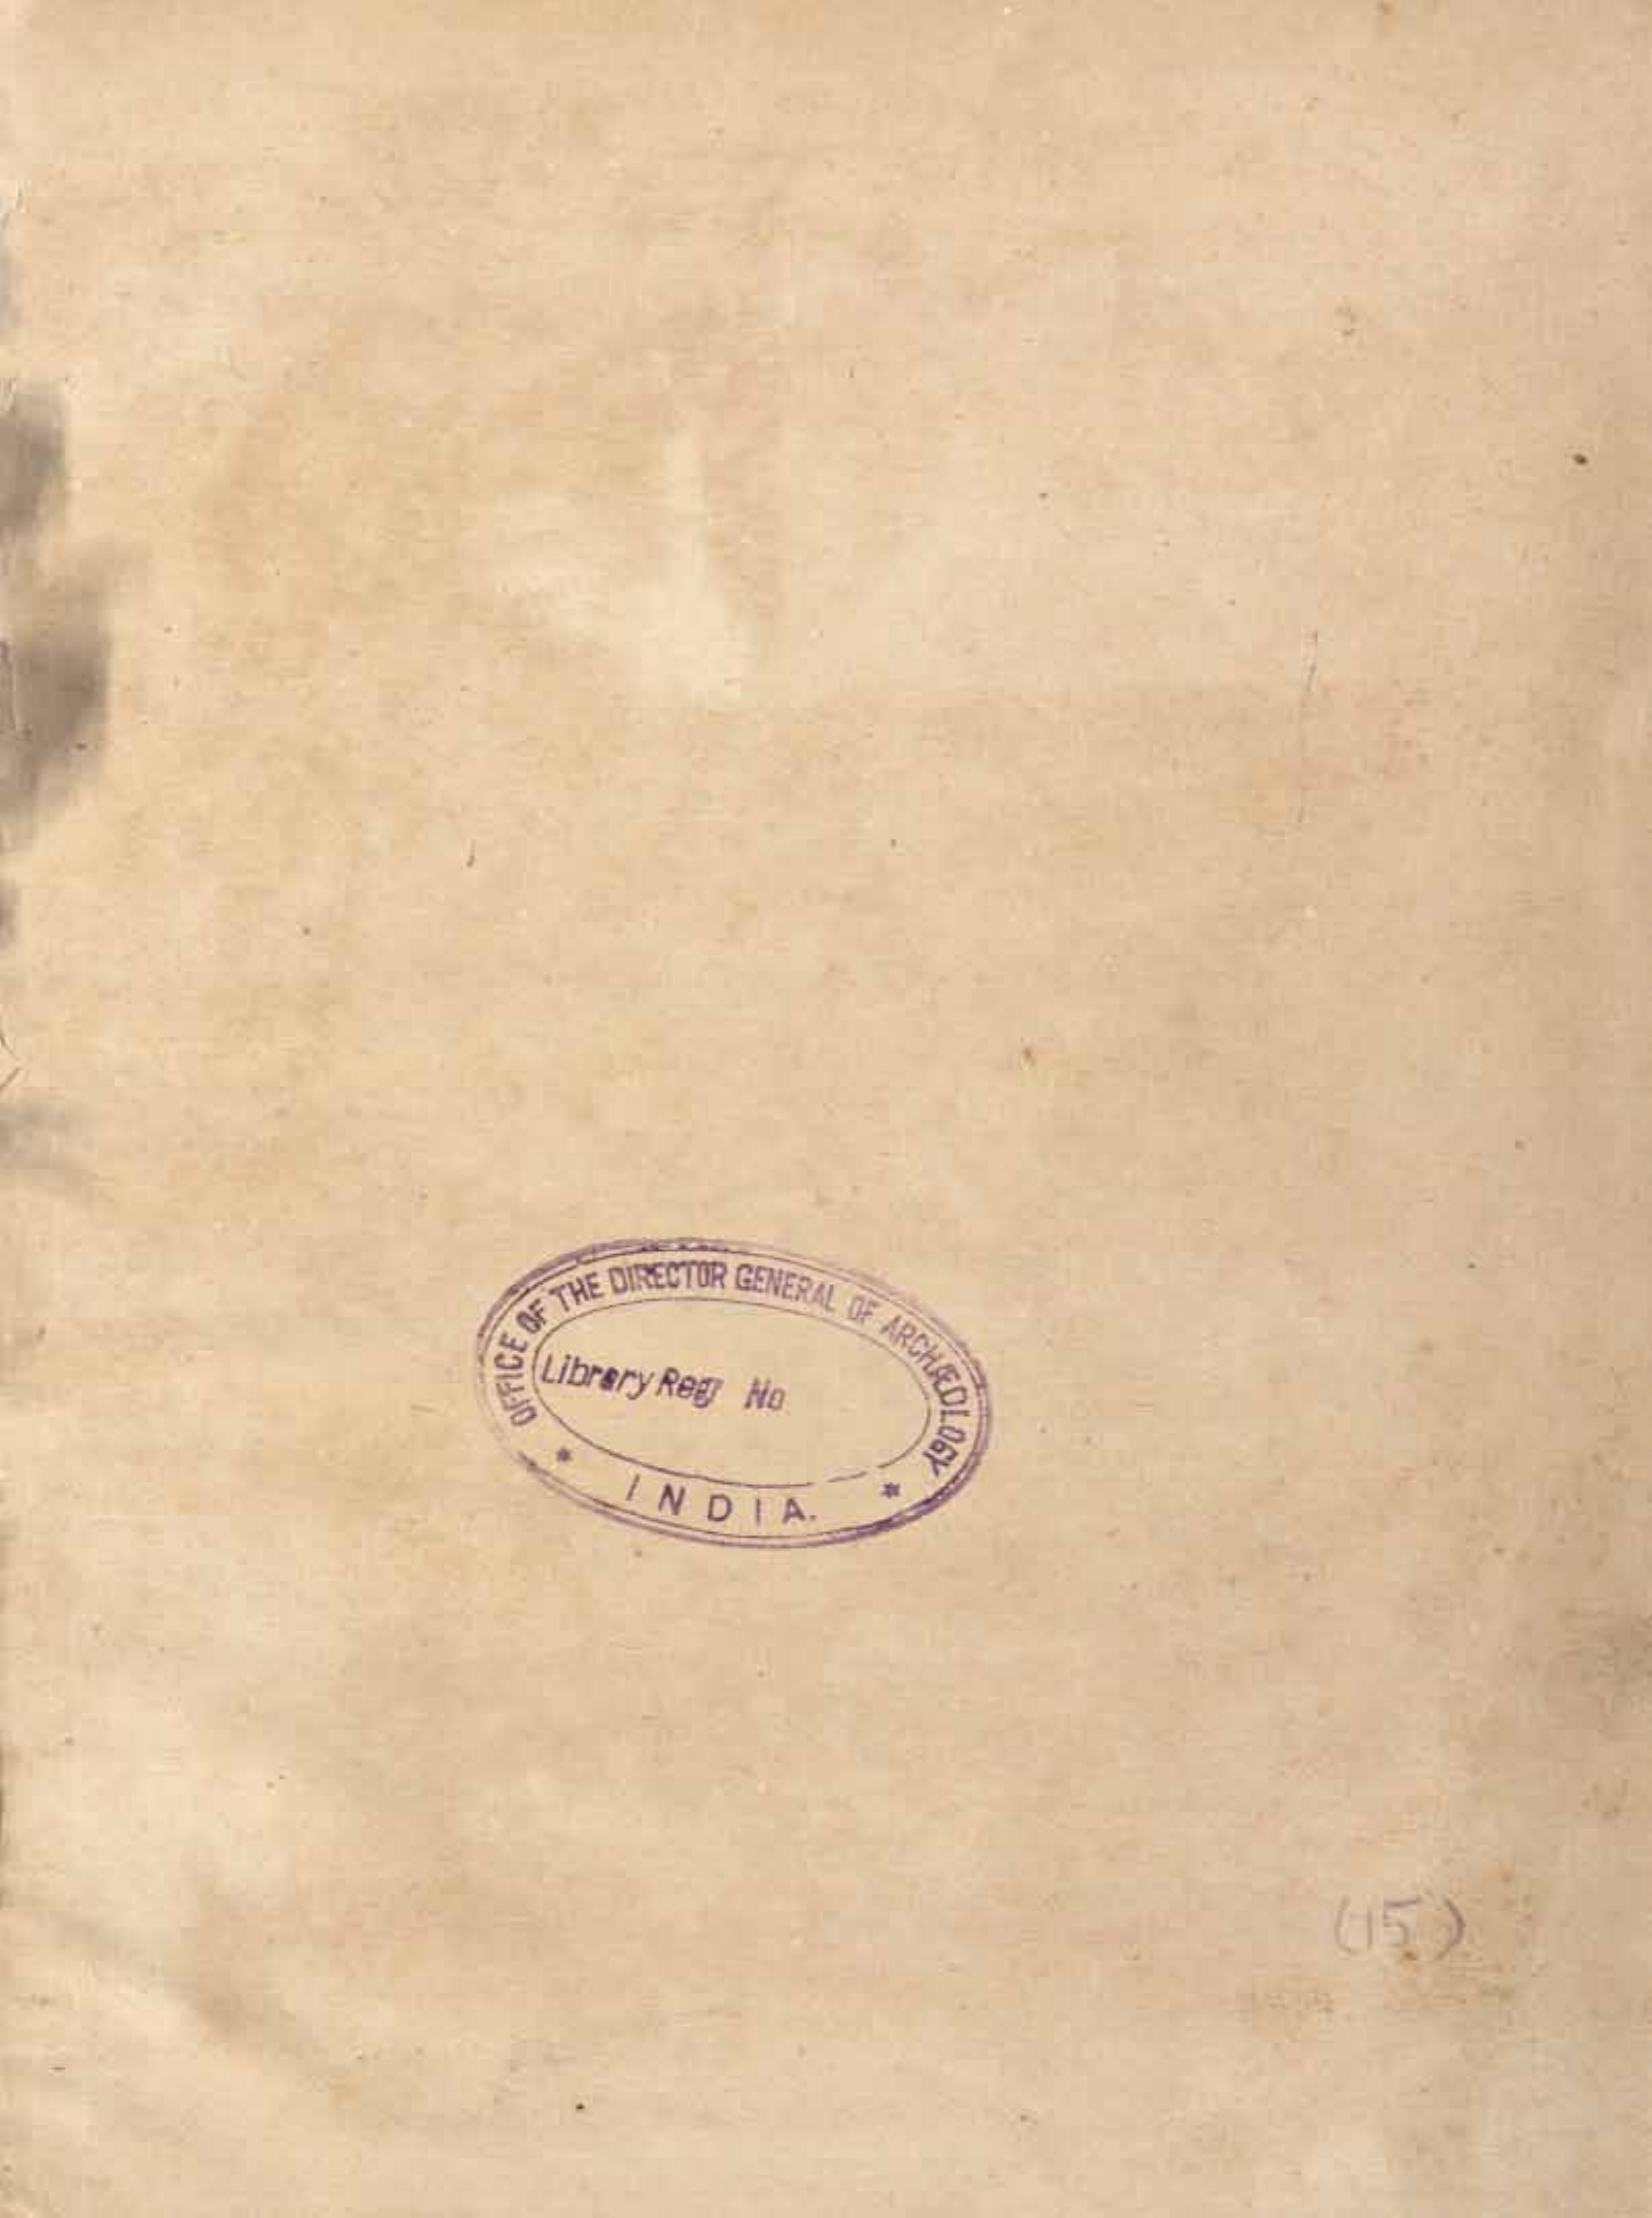 OFFICE OF THE DIRECTOR GENERAL OF ARCHÆOLOGY
Library Reg No
* INDIA. *
(15)